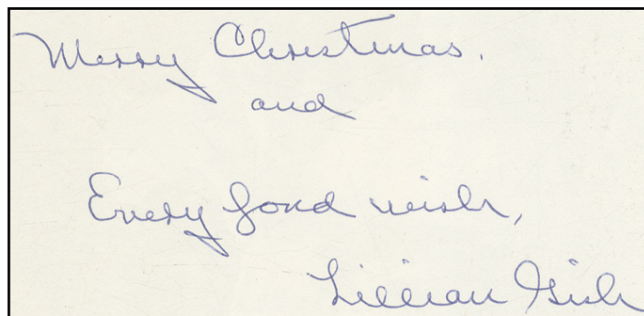 Merry Christmas.
and
Every fond wish,
Lillian Gish